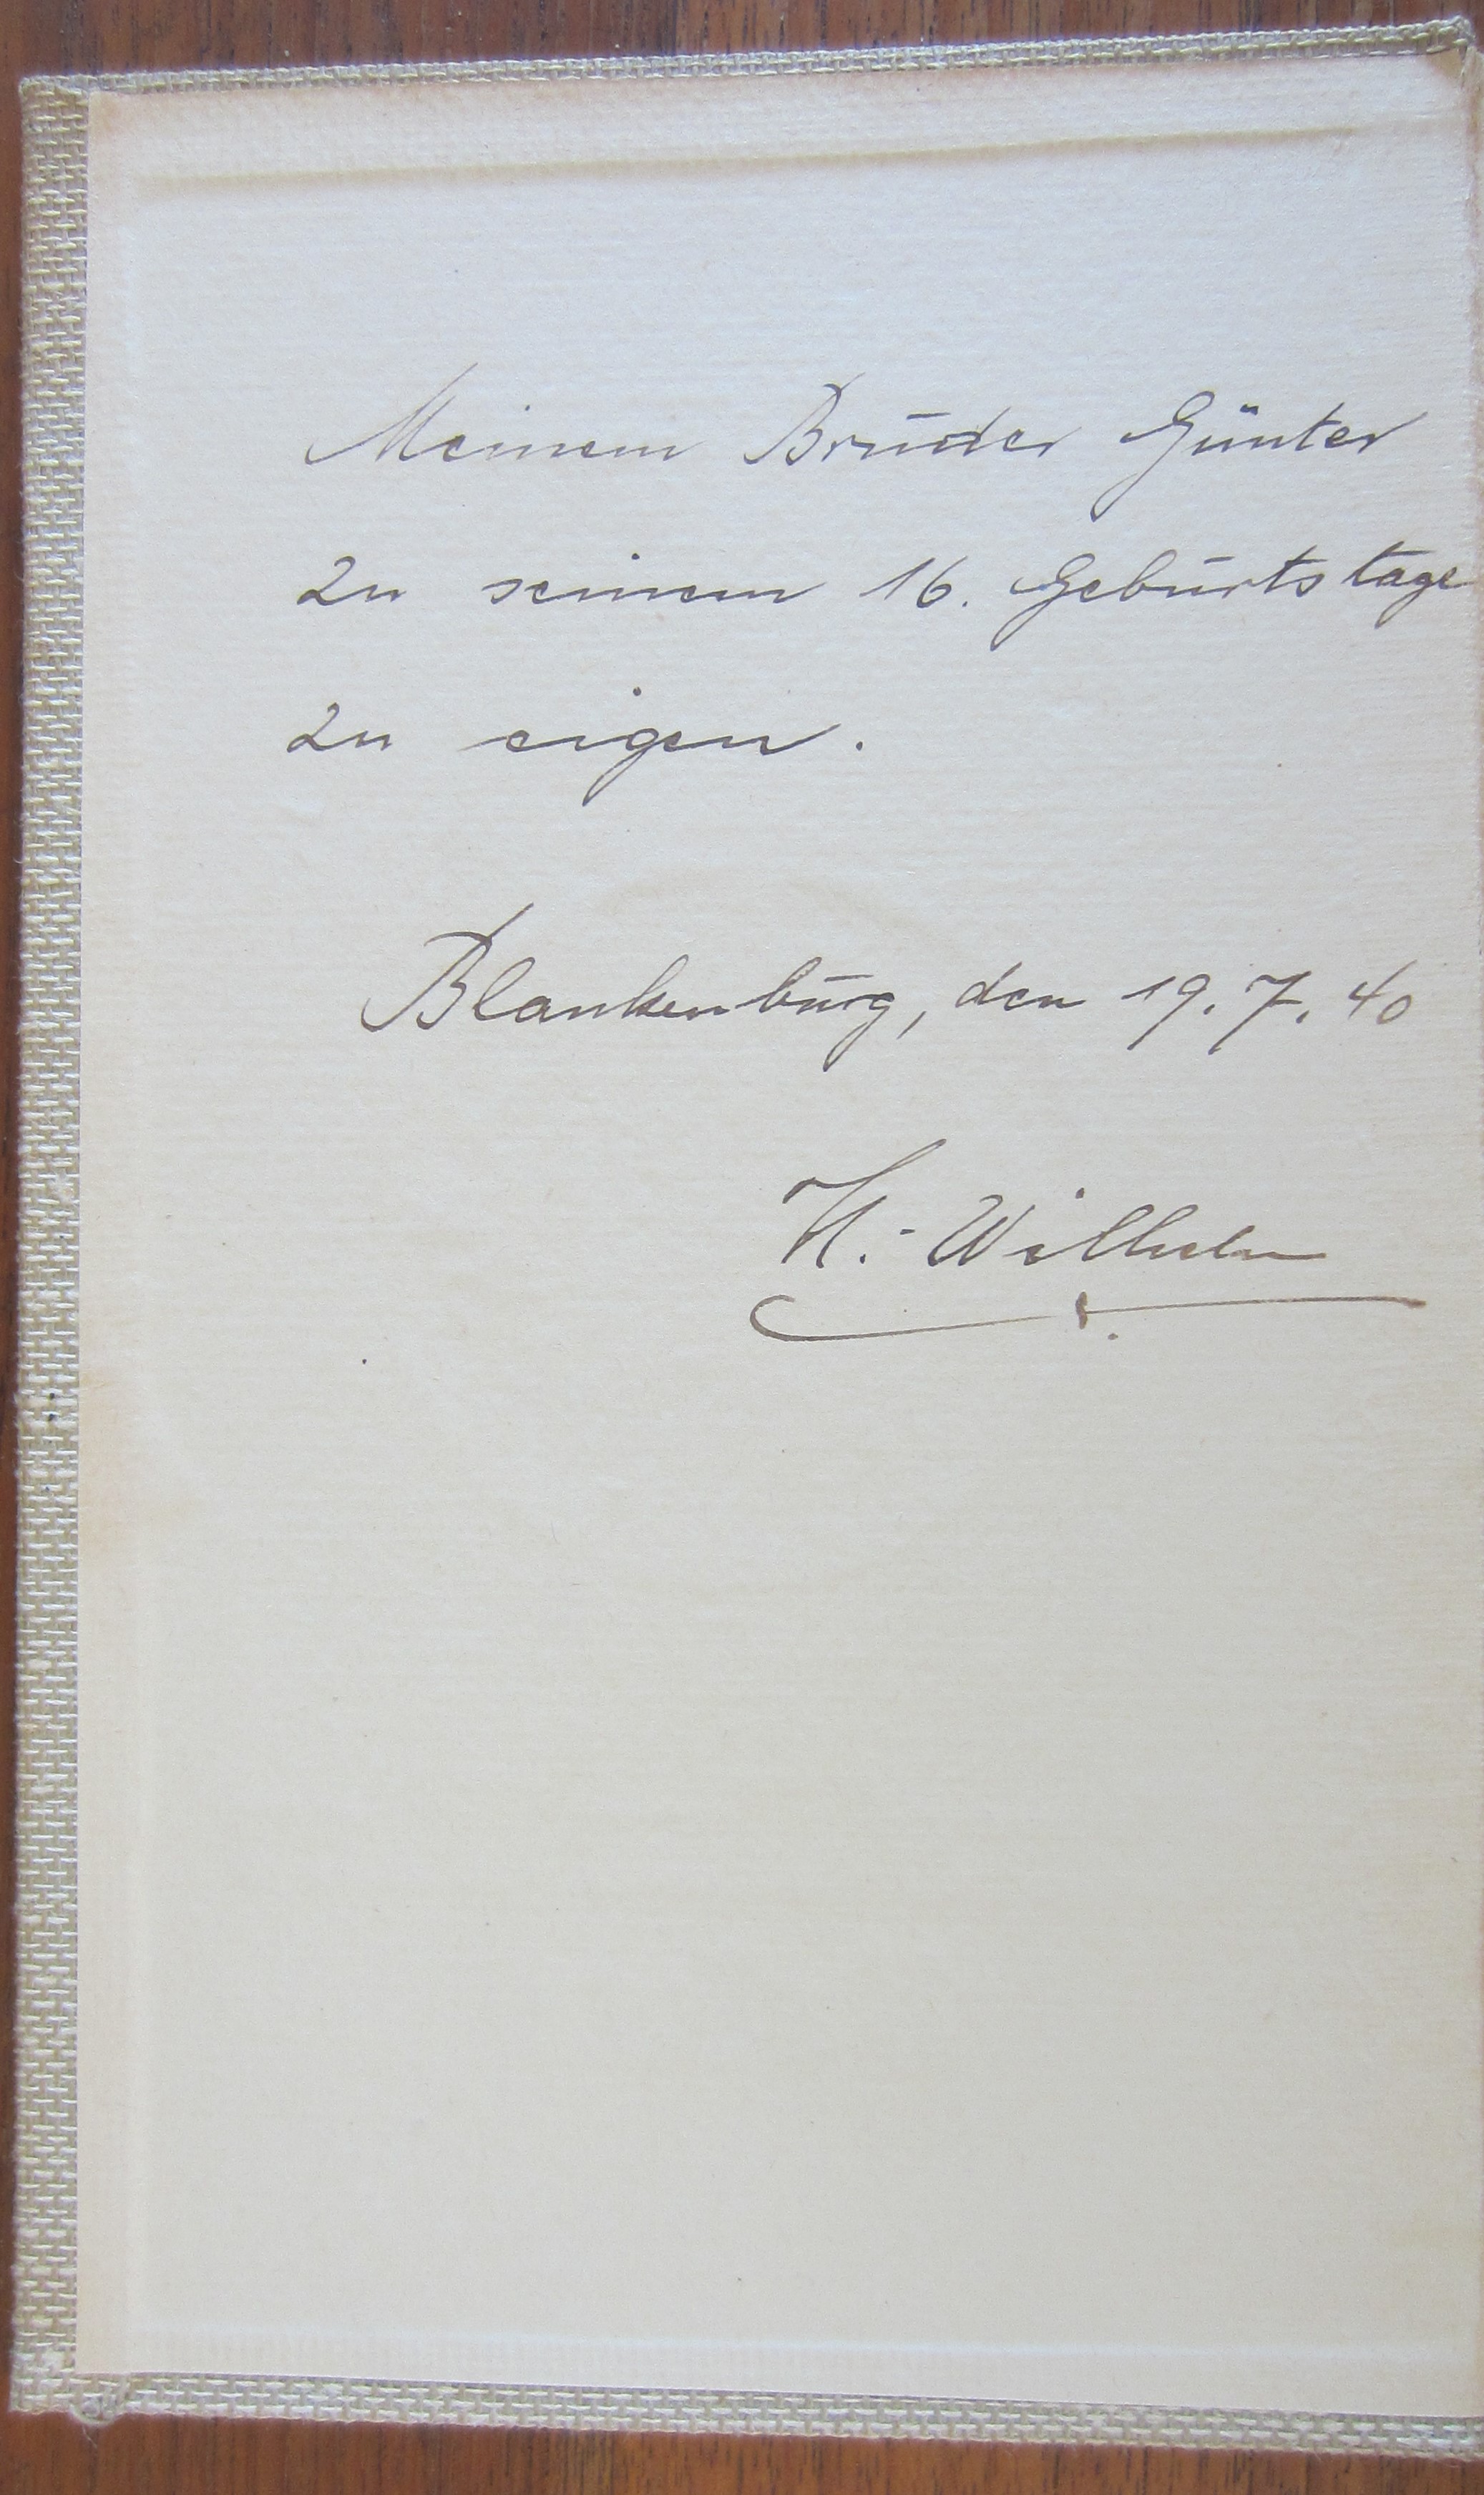 Meinem Bruder Günter
zu seinem 16. Geburtstage
zu eigen.
Blankenburg, den 19.7.40
H.-Wilhelm